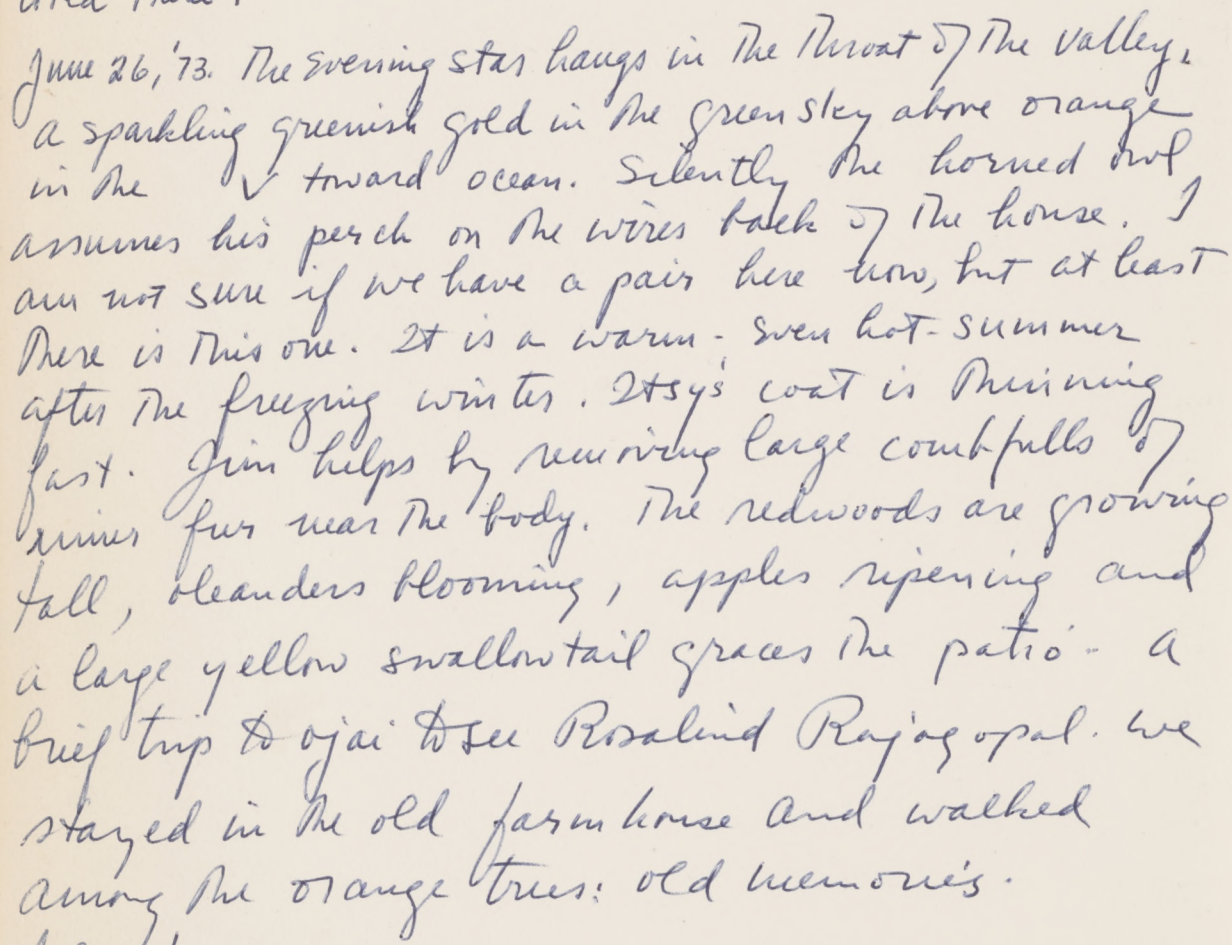 June 26, '73. The Evening star hangs in the throat of the valley,
a sparkling greenish gold in the green sky above orange
in the V toward ocean. Silently the horned owl
assumes his perch on the wires back of the house. I
am not sure if we have a pair here now, but at least
there is this one. It is a warm - even hot - summer
after the freezing winter. Itsy's coat is thinning
fast. Jim helps by removing large combfulls of
inner fur near the body. The redwoods are growing
tall, oleanders blooming, apples ripening and
a large yellow swallowtail graces the patio - A
brief trip to ojai to see Rosalind Rajagopal. We
stayed in the old farmhouse and walked
among the orange trees: old memories.